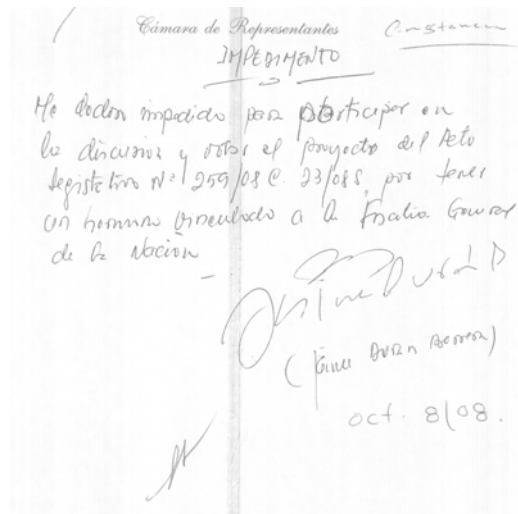 Cámara de Representantes
Constancia
IMPEDIMENTO
Me declaro impedido para participar en
la discusión y votar el proyecto del Acto
legislativo Nº 259/08 C. 23/08S, por tener
un hermano vinculado a la Fiscalía General
de la Nación
(Jaime Durán Barrera)
oct. 8/08.